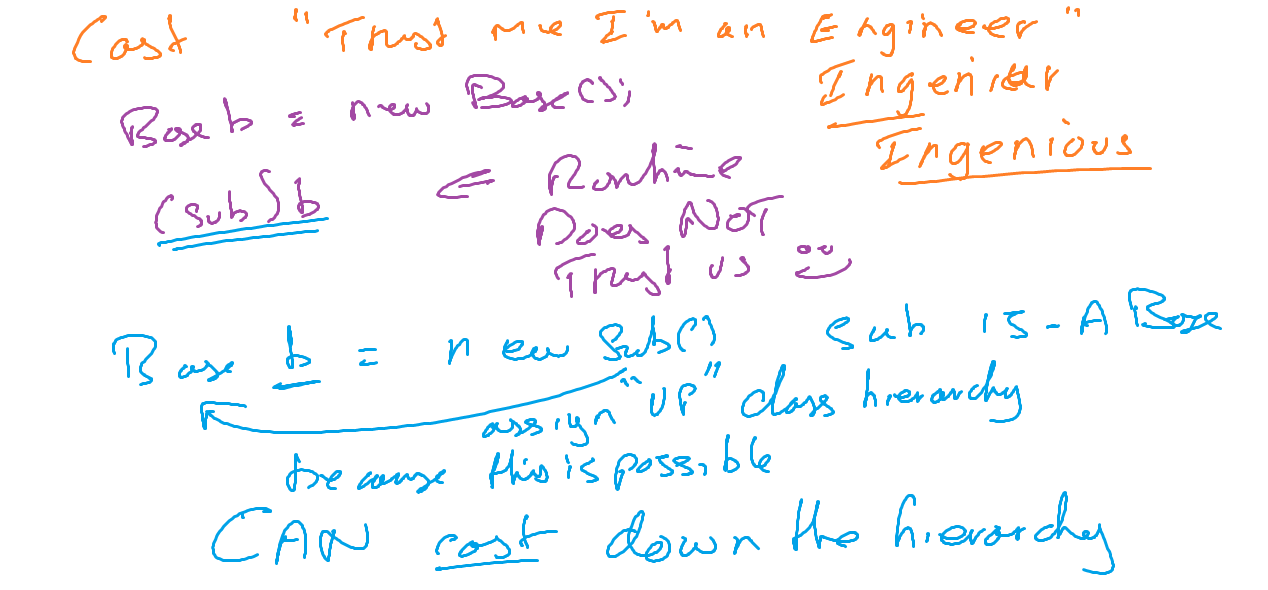 Cast "Trust me I'm an Engineer"
Ingenieur
Base b = new Base();
Ingenious
(sub) b ⇐ Runtime
Does NOT
Trust us
Base b = new Sub() Sub IS-A Base
assign "UP" class hierarchy
because this is possible
CAN cast down the hierarchy